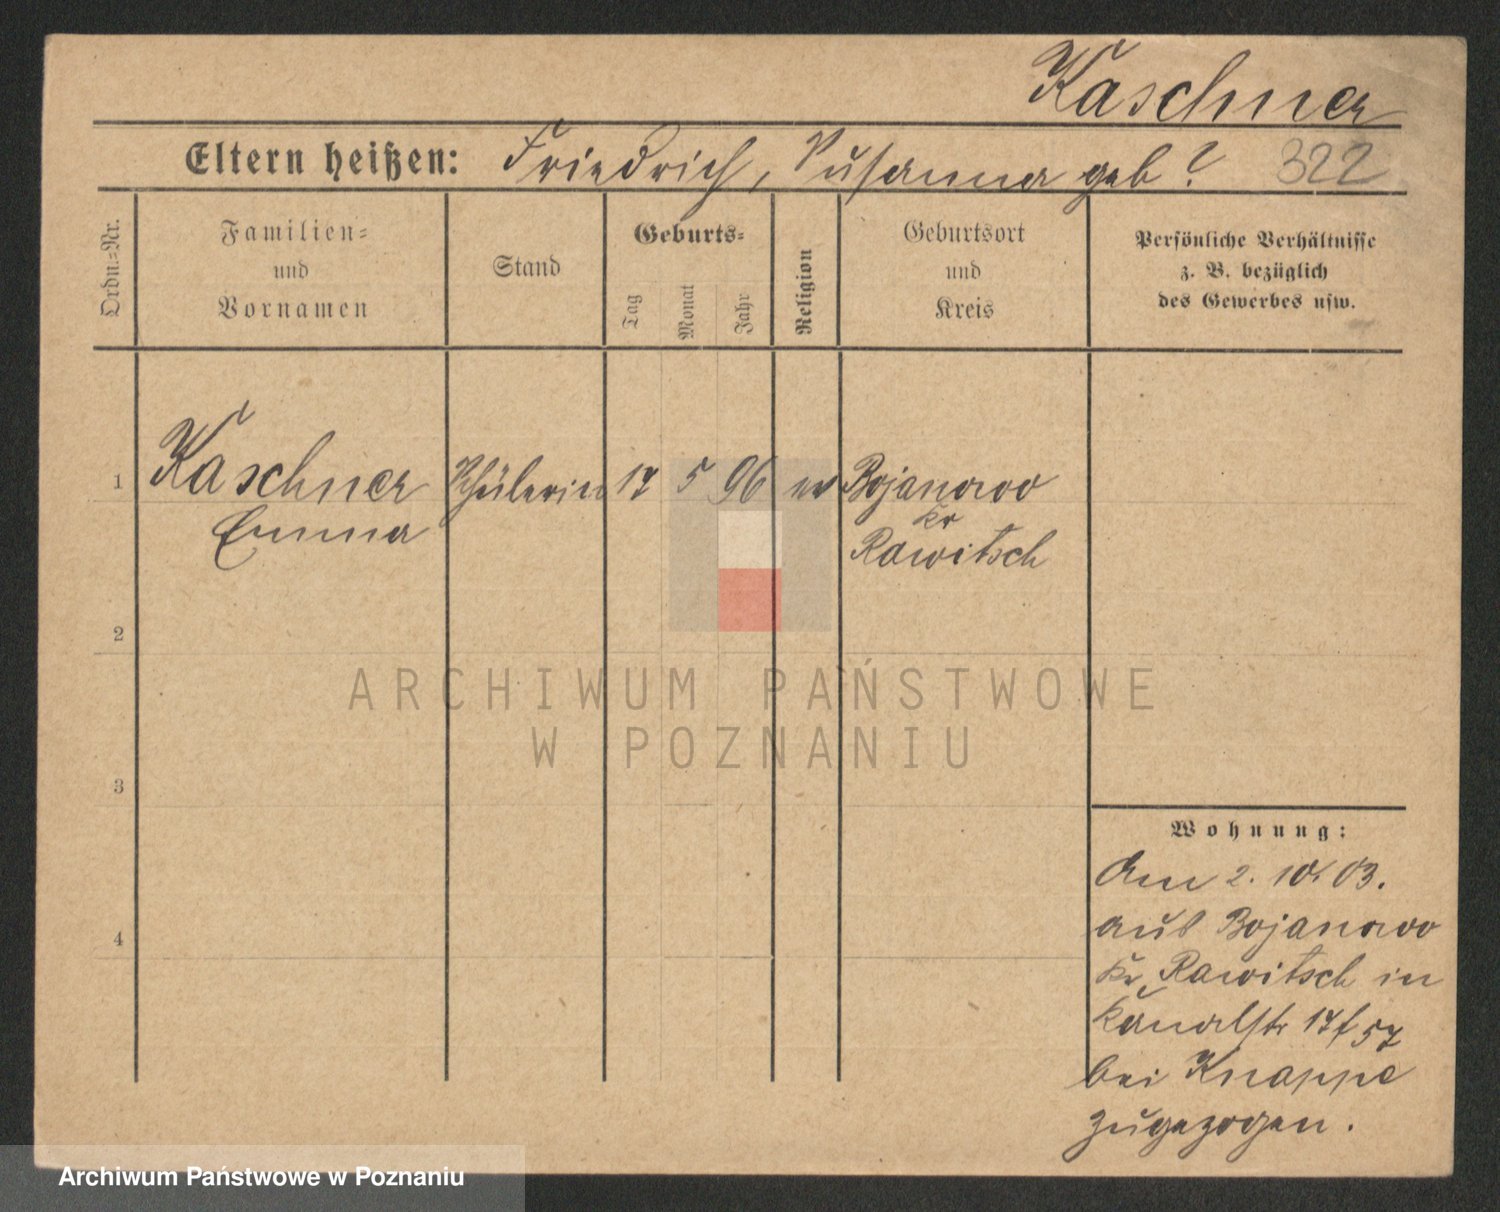 Kaschner
Eltern heißen: Friedrich, Susanna geb ? 322
Ordn.-Nr.
Familien-
und
Vornamen
Stand
Geburts-
Tag
Monat
Jahr
Religion
Geburtsort
und
Kreis
Persönliche Verhältnisse
z. B. bezüglich
des Gewerbes usw.
1 Kaschner Schülerin 17 5 96 ev Bojanowo
Kr
Emma Rawitsch
2
ARCHIWUM PAŃSTWOWE
W POZNANIU
3
Wohnung:
Am 2. 10. 03.
aus Bojanowo
4
Kr. Rawitsch in
Kanalstr 17/57
bei Knappe
zugezogen.
Archiwum Państwowe w Poznaniu